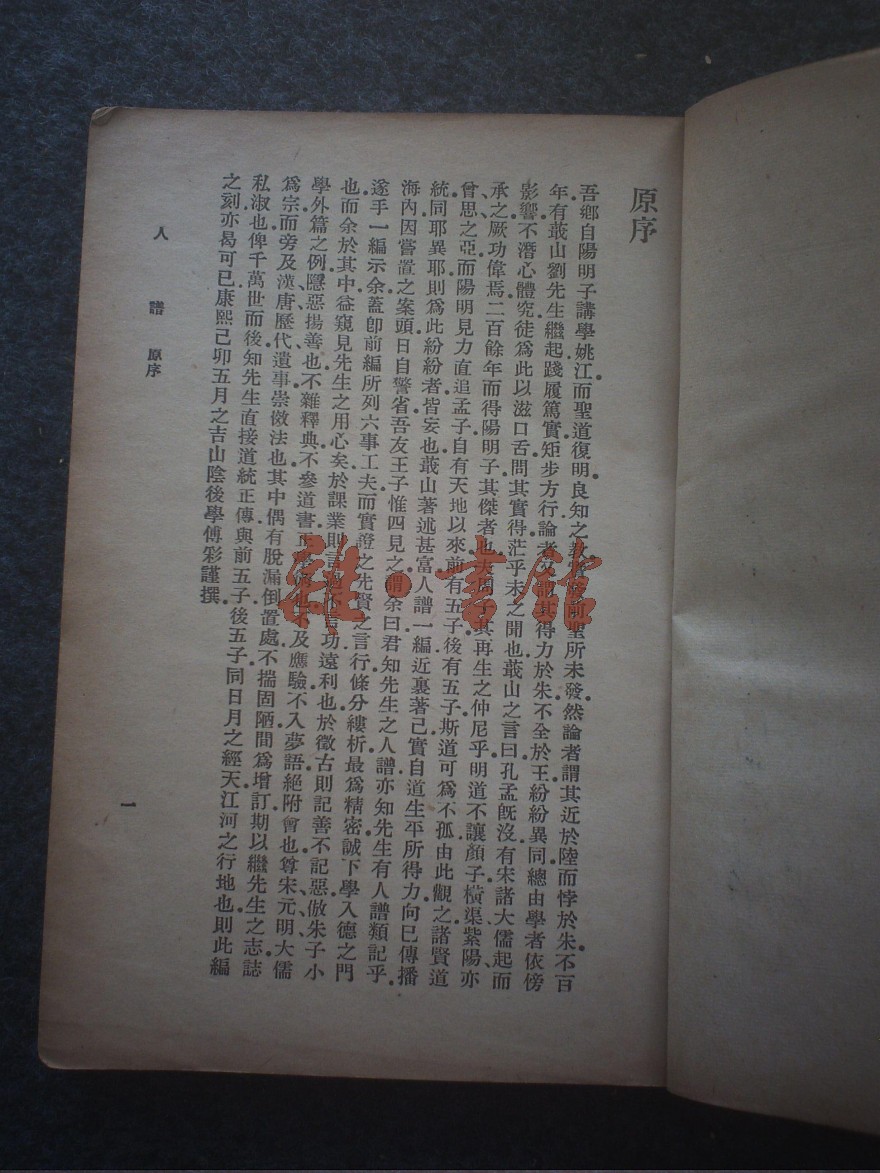 原序
吾鄉自陽明子講學姚江而聖道復明良知之教前聖所未發然論者謂其近於陸而悖於朱不百
年有蕺山劉先生繼起踐履篤實矩步方行論者又謂其得力於朱不全於王紛紛異同總由學者依傍
影響不潛心體究徒爲此以滋口舌問其實得茫乎未之聞也蕺山之言曰孔孟旣沒有宋諸大儒起而
承之厥功偉焉二百餘年而得陽明子其傑者也夫周子其再生之仲尼乎明道不讓顏子橫渠紫陽亦
曾思之亞而陽明見力直追孟子自有天地以來前有五子後有五子斯道可爲不孤由此觀之諸賢道
統同耶異耶則爲此紛紛者皆妄也蕺山著述甚富人譜一編近裏著己實自道生平所得力向已傳播
海內因嘗置之案頭日自警省吾友王子惟四見之謂余曰君知先生之人譜亦知先生有人譜類記乎
遂手一編示余蓋卽前編所列六事工夫而實證之先賢之言行條分縷析最爲精密誠下學入德之門
也而余於其中益窺見先生之用心矣於課業則言過不言功遠利也於徵古則記善不記惡倣朱子小
學外篇之例隱惡揚善也不雜釋典不參道書正也不及應驗不入夢語絕附會也尊宋元明大儒
爲宗而旁及漢唐歷代遺事崇儆法也其中偶有脫漏倒置處不揣固陋間爲增訂期以繼先生之志誌
私淑也俾千萬世而後知先生直接道統正傳與前五子後五子同日月之經天江河之行地也則此編
之刻亦曷可已康熙己卯五月之吉山陰後學傅彩謹撰
人譜 原序
一
雜·書館